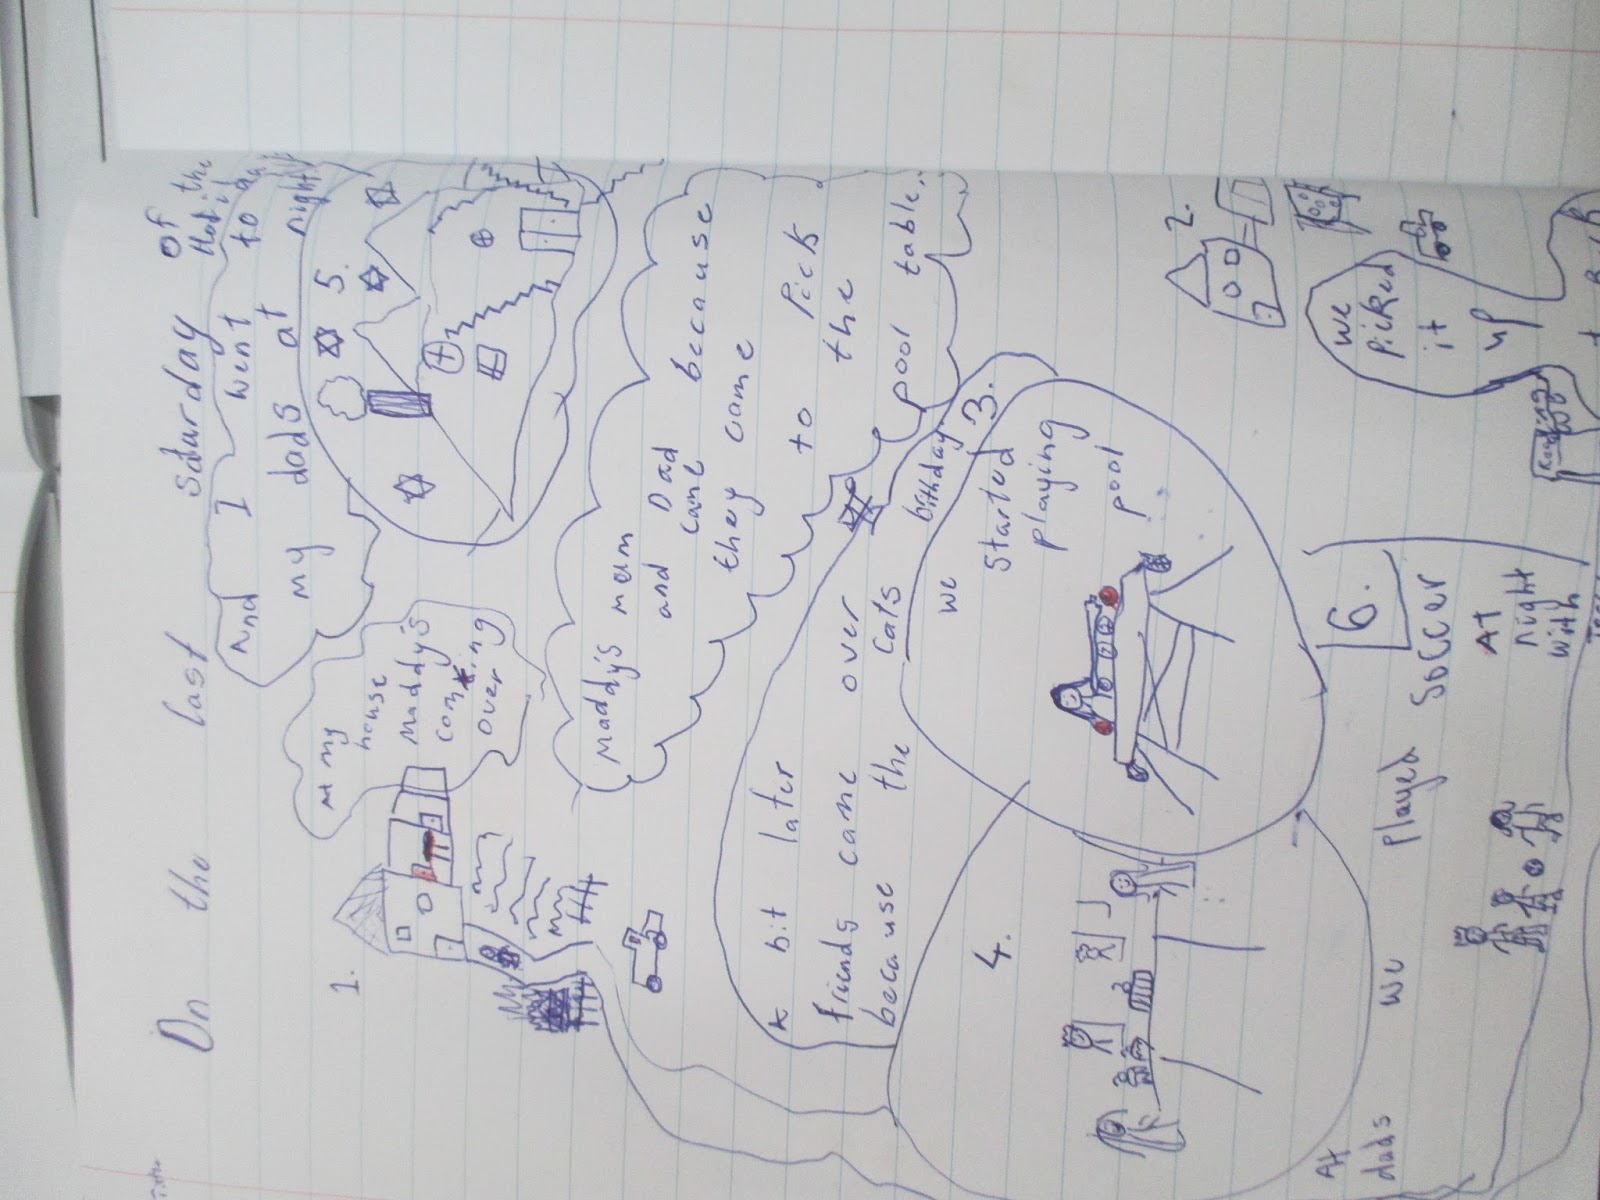 On the last saturday of
the Holidays
1.
At my
house
Maddy's
coming
over
Maddy's mum
and Dad
came because
they came
to Pick
the
pool table.
2.
we
Picked
it
up
3.
we
started
playing
pool
4.
A bit later
friends came over
because the cats
birthday.
5.
And I went to
my dads at night
6.
At
dads
we
Played
Soccer
AT
night
with